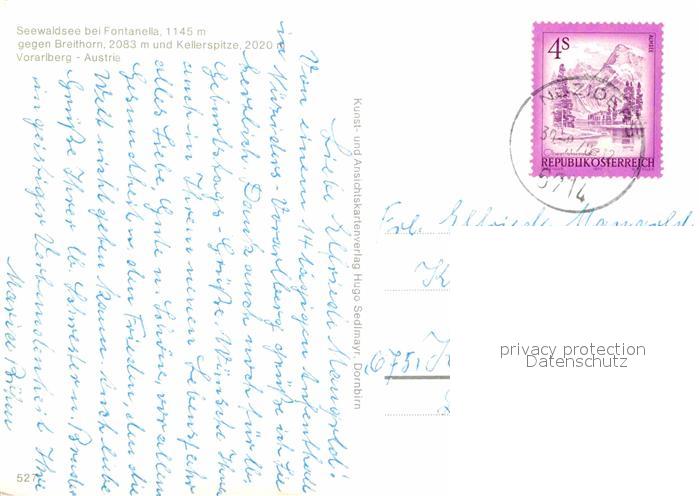 Seewaldsee bei Fontanella, 1145 m
gegen Breithorn, 2083 m und Kellerspitze, 2020 m
Vorarlberg - Austria
Liebe Elfriede Mangold!
Von einem 14 tägigen Aufenthalt
in Nüziders-Vorarlberg grüße ich Sie
herzlich. Dank auch noch für die
Geburtstags-Grüße. Wünsche Ihnen
auch in Ihrem neuen Lebensjahr
alles Liebe Gute u. Schöne, vor allem
Gesundheit u. den Frieden, den die
Welt nicht geben kann. Auch liebe
Grüße Ihrer lb. Schwester u. Bruder
in geistiger Verbundenheit Ihre
Maria Böhm
527
Kunst- und Ansichtskartenverlag Hugo Sedlmayr, Dornbirn
4S
ALMSEE
REPUBLIK ÖSTERREICH
NÜZIDERS
6714
Frl. Elfriede Mangold
K
675
privacy protection
Datenschutz